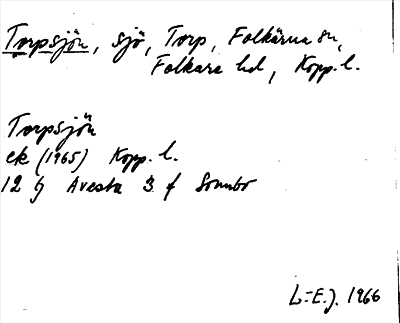 Torpsjön, sjö, Torp, Folkärna sn,
Folkare hd, Kopp. l.
Torpsjön
ek (1965) Kopp. l.
12 G Avesta 3 f Sonnbo
L-E.J. 1966